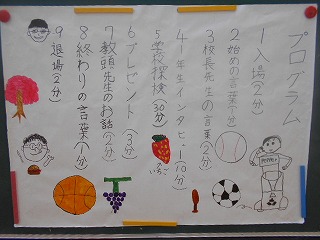 プログラム
1 入場(2分)
2 始めの言葉(1分)
3 校長先生の言葉(2分)
4 1年生インタビュー(10分)
5 学校探検(30分)
6 プレゼント(3分)
7 教頭先生のお話(2分)
8 終わりの言葉(1分)
9 退場(2分)
いちご